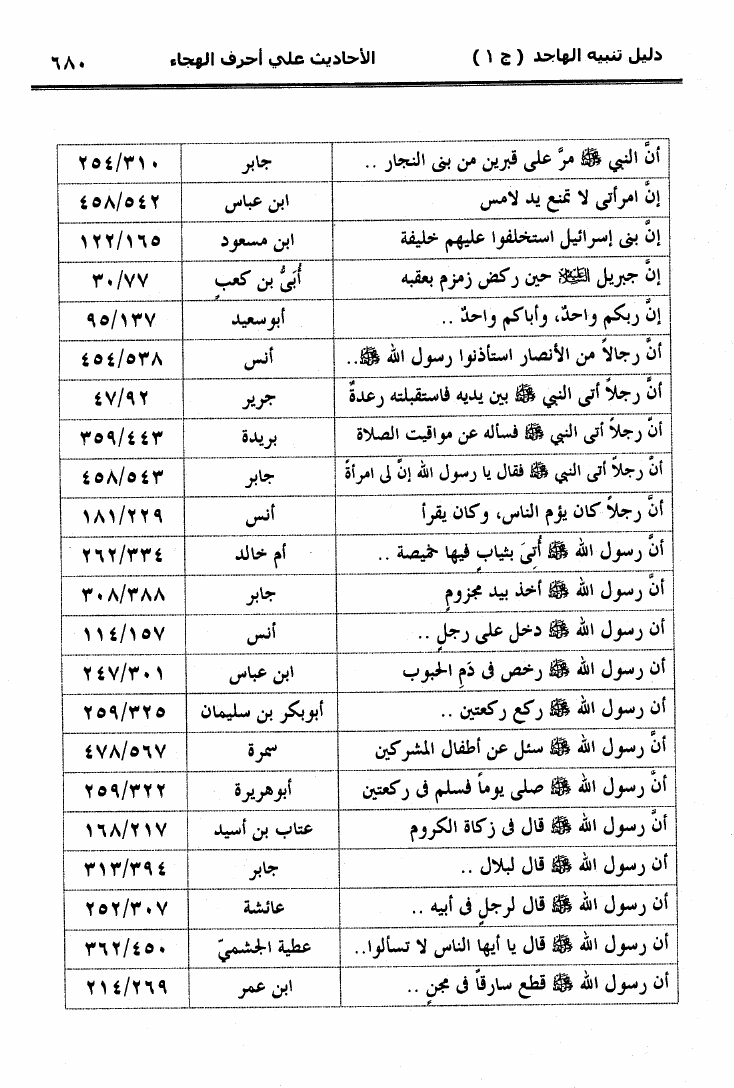 دليل تنبيه الهاجد ( ج ١ ) الأحاديث علي أحرف الهجاء ٦٨٠
أنَّ النبي ﷺ مرَّ على قبرين من بنى النجار .. جابر ٢٥٤/٣١٠
إنَّ امرأتى لا تمنع يد لامس ابن عباس ٤٥٨/٥٤٢
إنَّ بنى إسرائيل استخلفوا عليهم خليفة ابن مسعود ١٢٢/١٦٥
إنَّ جبريل عليه السلام حين ركض زمزم بعقبه أُبَىُّ بن كعبٍ ٣٠/٧٧
إنَّ ربكم واحدٌ، وأباكم واحدٌ .. أبوسعيد ٩٥/١٣٧
أنَّ رجالاً من الأنصار استأذنوا رسول الله ﷺ.. أنس ٤٥٤/٥٣٨
أنَّ رجلاً أتى النبي ﷺ بين يديه فاستقبلته رعدةٌ جرير ٤٧/٩٢
أنَّ رجلاً أتى النبي ﷺ فسأله عن مواقيت الصلاة بريدة ٣٥٩/٤٤٣
أنَّ رجلاً أتى النبي ﷺ فقال يا رسول الله إنَّ لى امرأةً جابر ٤٥٨/٥٤٣
أنَّ رجلاً كان يؤم الناس، وكان يقرأ أنس ١٨١/٢٢٩
أنَّ رسول الله ﷺ أُتِىَ بثيابٍ فيها خميصة .. أم خالد ٢٦٢/٣٣٤
أنَّ رسول الله ﷺ أخذ بيد مجزومٍ جابر ٣٠٨/٣٨٨
أن رسول الله ﷺ دخل على رجلٍ .. أنس ١١٤/١٥٧
أن رسول الله ﷺ رخص فى دَمِ الحبوب ابن عباس ٢٤٧/٣٠١
أن رسول الله ﷺ ركع ركعتين .. أبوبكر بن سليمان ٢٥٩/٣٢٥
أنَّ رسول الله ﷺ سئل عن أطفال المشركين سمرة ٤٧٨/٥٦٧
أنَّ رسول الله ﷺ صلى يوماً فسلم فى ركعتين أبوهريرة ٢٥٩/٣٢٢
أنَّ رسول الله ﷺ قال فى زكاة الكروم عتاب بن أسيد ١٦٨/٢١٧
أن رسول الله ﷺ قال لبلال .. جابر ٣١٣/٣٩٤
أن رسول الله ﷺ قال لرجلٍ فى أبيه .. عائشة ٢٥٢/٣٠٧
أن رسول الله ﷺ قال يا أيها الناس لا تسألوا.. عطية الجشميّ ٣٦٢/٤٥٠
أن رسول الله ﷺ قطع سارقاً فى مجنٍ .. ابن عمر ٢١٤/٢٦٩